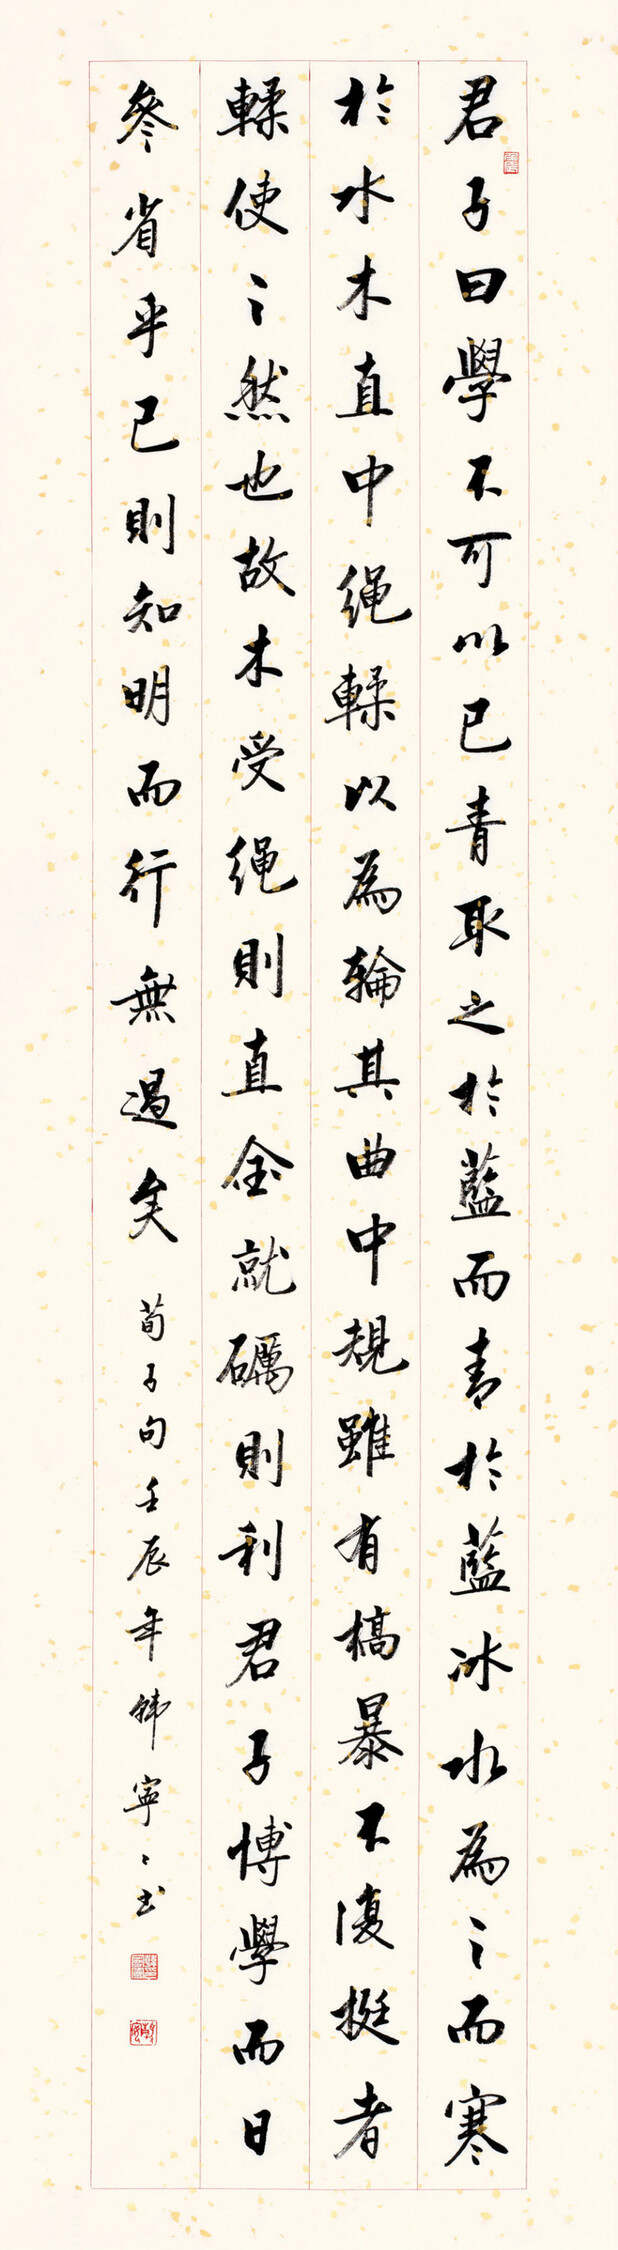 君子曰學不可以已青取之於藍而青於藍冰水為之而寒
於水木直中绳輮以為輪其曲中規雖有槁暴不復挺者
輮使之然也故木受绳則直金就礪則利君子博學而日
參省乎己則知明而行無過矣 荀子句壬辰年韩寧寧书